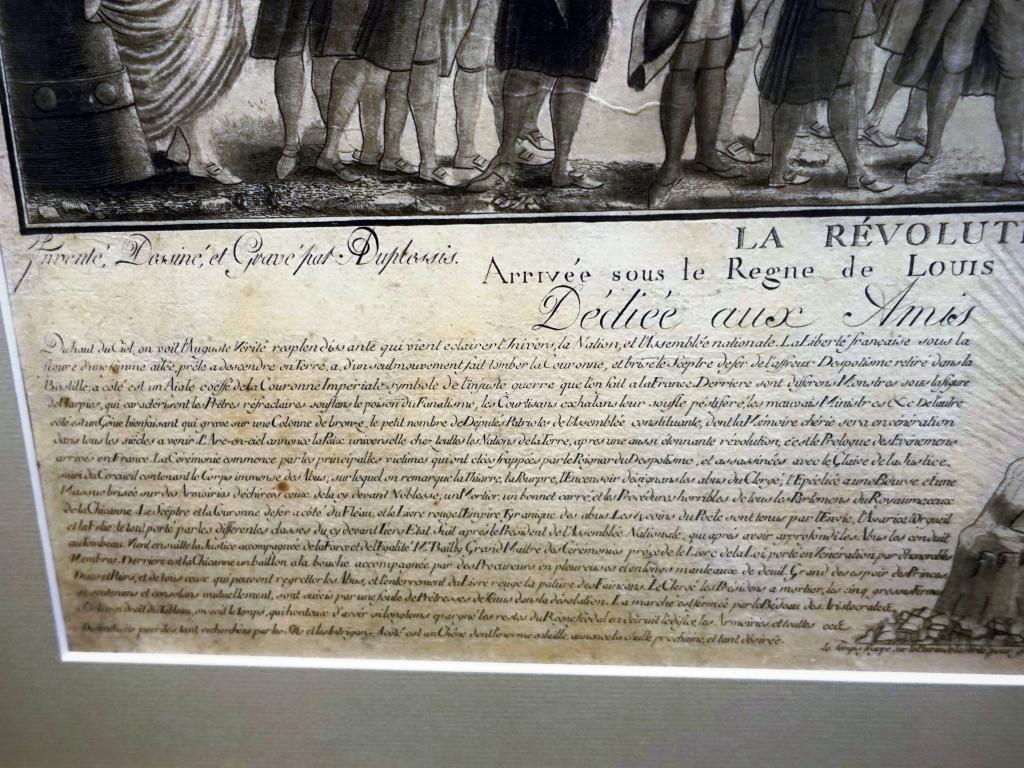 Inventé, Dessiné, et Gravé par A Duplessis.
LA RÉVOLUTI
Arrivée sous le Regne de Louis
Dédiée aux Amis
Du haut du Ciel, on voit l'Auguste Vérité resplendissante qui vient eclairer l'Univers, la Nation, et l'Assemblée nationale. La Liberté française sous la
figure d'une femme ailée, prête a descendre en Terre, a, d'un seul mouvement fait tomber la Couronne, et brisé le Sceptre de fer de l'affreux Despotisme retiré dans la
Bastille; a côté est un Aigle coëffé de la Couronne Imperiale, symbole de l'injuste guerre que l'on fait a la France. Derriere sont diferens Monstres sous la figure
de Harpies, qui caractérisent les Prêtres réfractaires souflans le poison du Fanatisme, les Courtisans exhalans leur soufle pestiféré, les mauvais Ministres &c. De l'autre
côté est un Génie bienfaisant qui grave sur une Colonne de bronze, le petit nombre de Députés Patriotes de l'Assemblée constituante, dont la Mémoire chérie sera en vénération
dans tous les siécles a venir. L'Arc-en-ciel annonce la Paix universelle chez touttes les Nations de la Terre, apres une aussi étonnante révolution, c'est le Prologue des Evénemens
arrivés en France. La Cérémonie commence par les principalles victimes qui ont étés frappées par le Poignar du Despotisme, et assassinées avec le Glaive de la Justice,
suivi du Cercueil contenant le Corps immense des Abus, sur lequel on remarque la Thiarre, la Pourpre, l'Encensoir désignans les abus du Clergé; l'Epée liée a une Bourse et une
Massue brisée sur des Armoiries déchirées ceux de la cy devant Noblesse; un Mortier, un bonnet carré, et les Procédures horribles de tous les Parlemens du Royaume ceux
de la Chicanne. Le Sceptre et la Couronne de fer a côté du Fléau, et le Livre rouge l'Empire Tyranique des abus. Les 4 coins du Poële sont tenus par l'Envie, l'Avarice l'Orgueil
et la Folie; le tout porté par les differentes classes du cy devant Tiers Etat. Suit après le Président de l'Assemblée Nationale, qui après avoir approfondi les Abus les conduit
au tombeau. Vient ensuitte la Justice accompagnée de la Force et de l'Egalité. Mr. Bailly Grand Maitre des Ceremonies précède le Livre de la Loi porté en Vénération par d'honorables
Membres. Derriere est la Chicanne un baillon a la bouche accompagnée par des Procureurs en pleureuses et en longs manteaux de deuil. Grand desespoir des Princes,
Ducs et Pairs, et de tous ceux qui peuvent regretter les Abus, et l'enterrement du Livre rouge la pature des Faineans. Le Clergé les Présidens a mortier, les cinq grosses fermes
se soutenans et consolans mutuellement, sont suivis par une foule de Prêtresses de Vénus dans la désolation. La marche est fermée par le Bedeau des Aristocrates
droit du Tableau, on voit le temps, qui honteux d'avoir si longtems épargné les restes du Regne féodal en détruit l'edifice, les Armoiries, et touttes ces
Distinctions puériles, tant recherchées par les Sots et les Intrigans. A côté est un Chêne dont l'enorme
prochaine, et tant désirée.
Le temps frappe sur